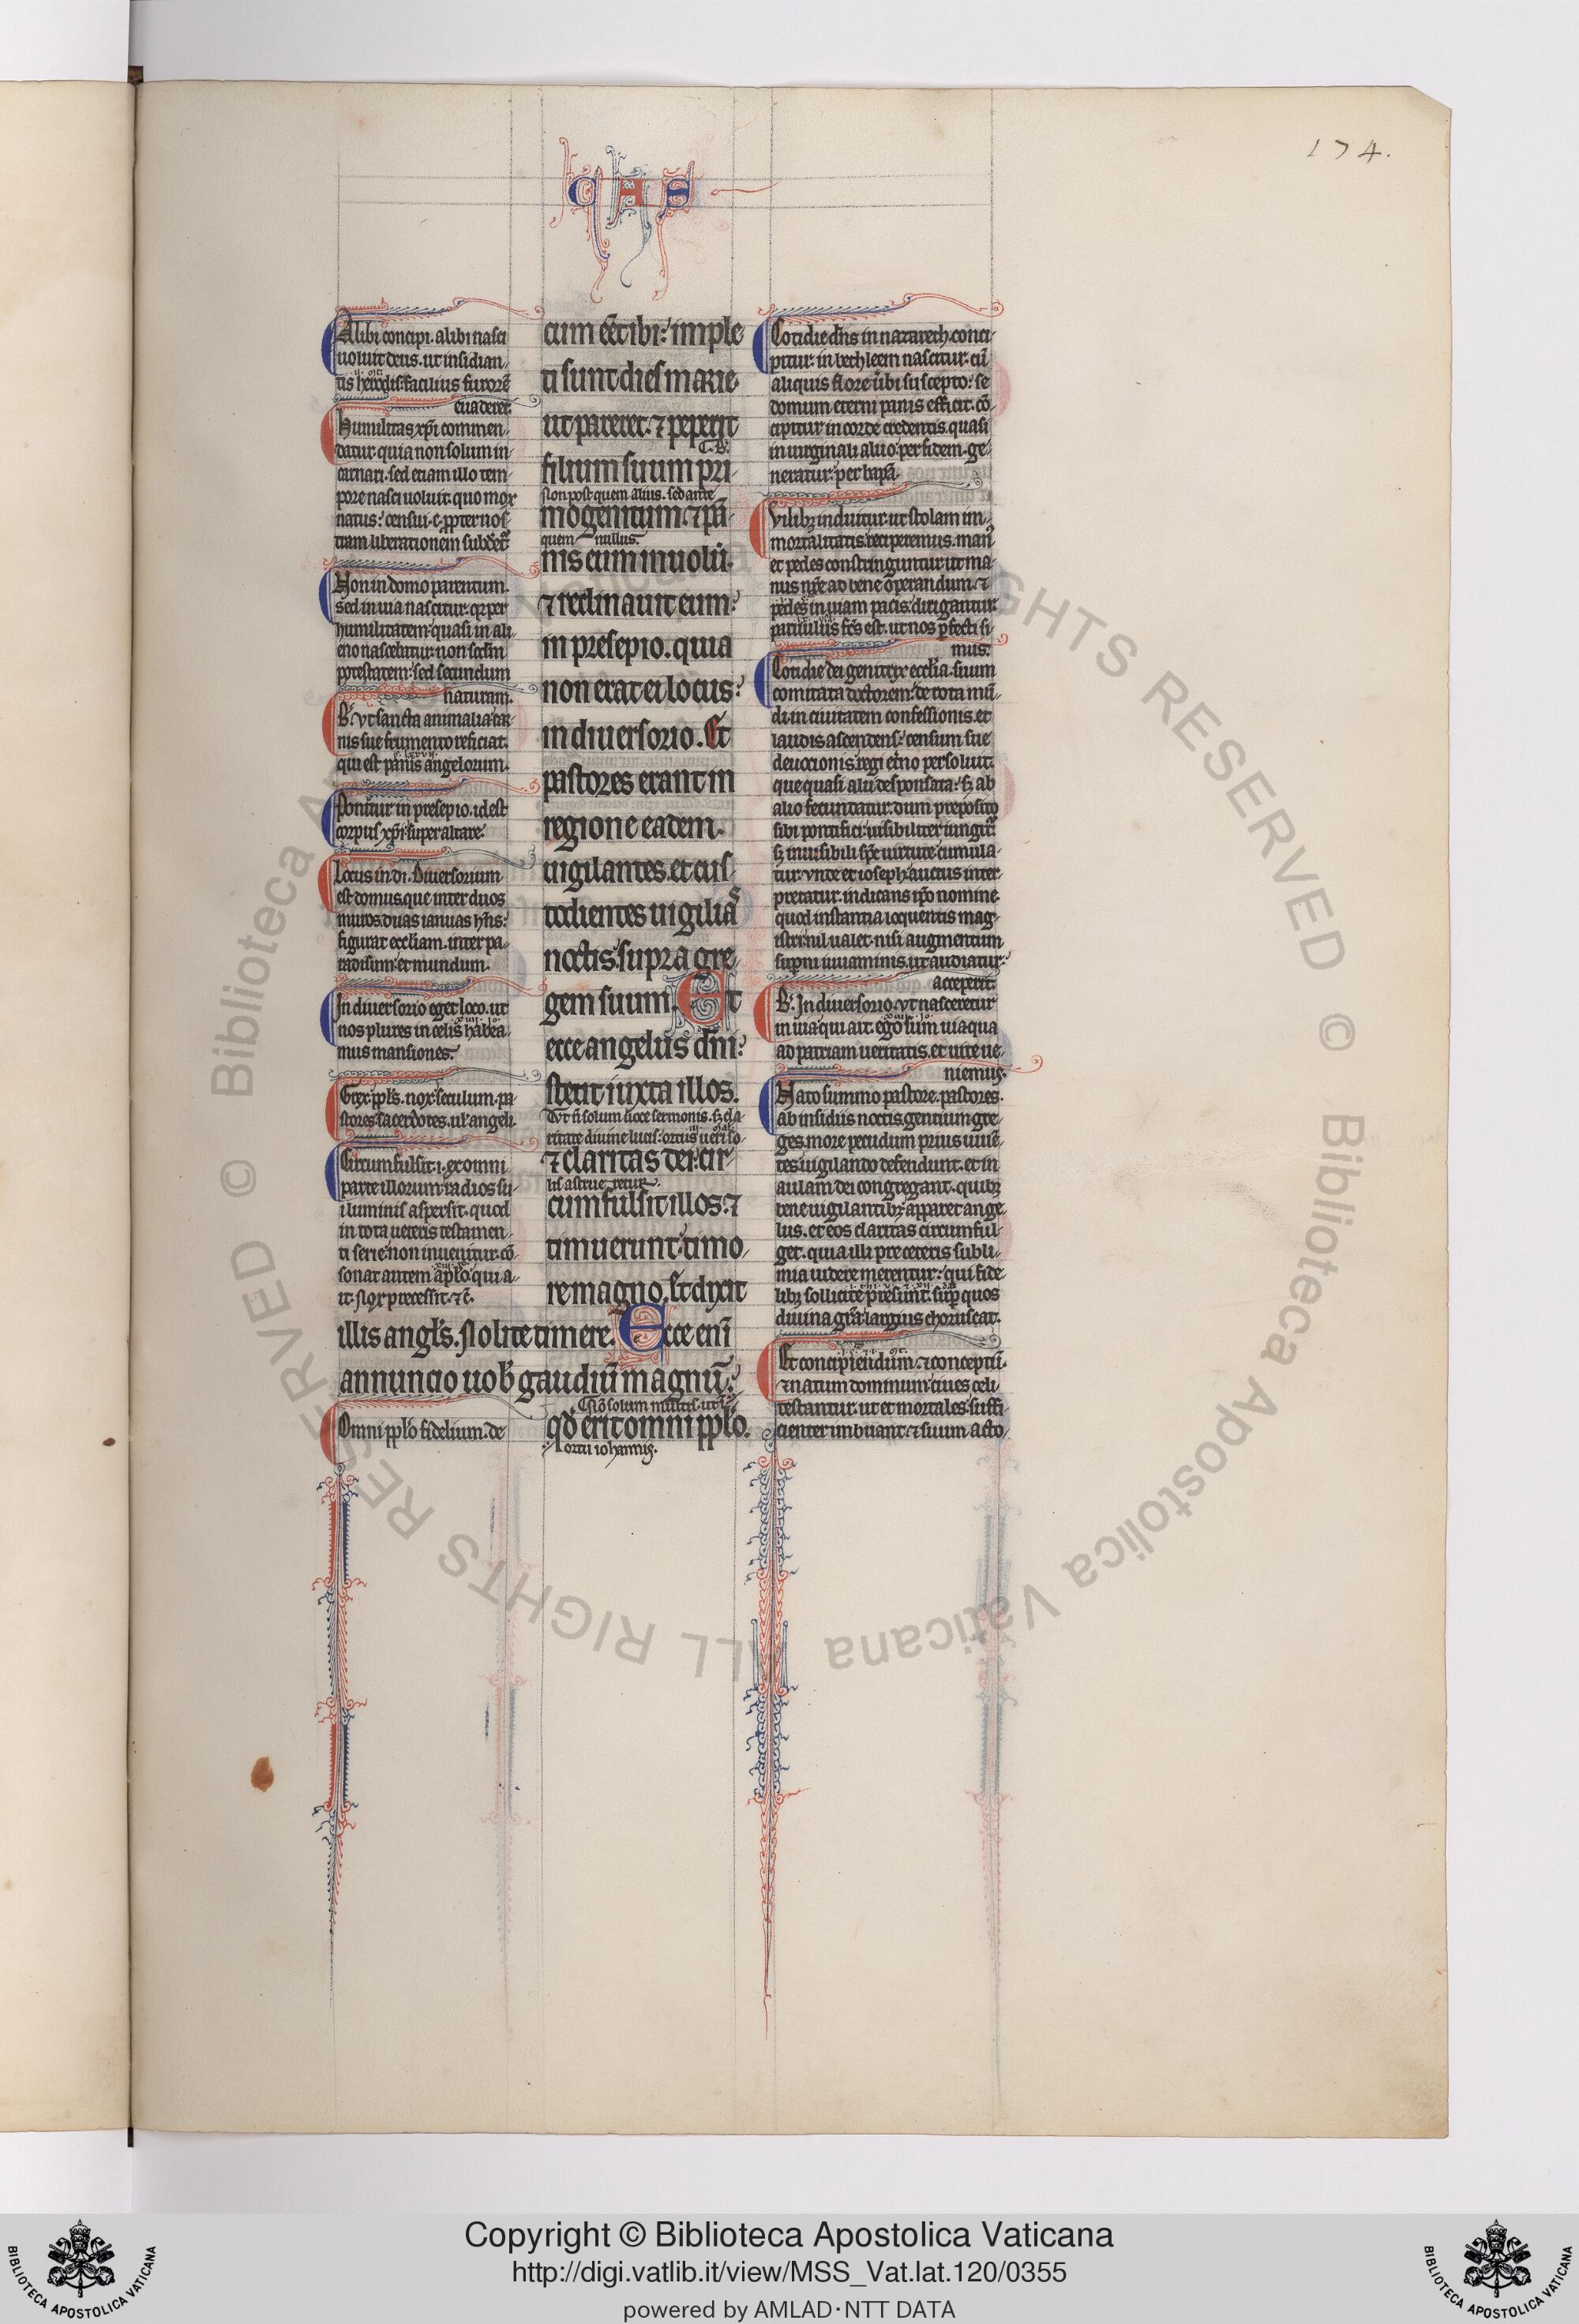 174.
CAS
Alibi concipi. alibi nasci
uoluit deus. ut insidian-
tis herodis facilius furorē
euaderet.
Humilitas xp̄i commen-
datur. quia non solum in-
carnari. sed etiam illo tem-
pore nasci uoluit. quo mox
natus: censui. c. ꝓpter nos-
tram liberationem
Non in domo parentum.
sed in uia nascitur. qr per
humilitatem quasi in ali-
eno nascebatur. non scdm
potestatem: sed secundum
naturam.
B'. vt sancta animalia car-
nis sue frumento reficiat.
qui est panis angelorum.
Ponitur in presepio. id est
corpus xp̄i super altare.
Locus in di. Diuersorium
est domus que inter duos
muros. duas ianuas hn̄s:
figurat eccl'iam. inter pa-
radisum: et mundum.
In diuersorio eget loco. ut
nos plures in celis habea-
mus mansiones.
Grex ppl's. nox seculum. pa-
stores sacerdotes. ul' angeli.
Circumfulsit. i. ex omni
parte illorum radios su-
i luminis aspersit. quod
in tota ueteris testamen-
ti serie non inuenitur. cō-
sonat autem ap̄lo. qui a-
it. Nox precessit. ⁊ c̄.
Omni ppl'o fidelium. de
cum eēt ibi: imple-
ti sunt dies marie
ut pareret. ⁊ peperit
filium suum pri-
Non post quem alius. sed ante
mogenitum. ⁊ pā-
quem nullus.
nis eum inuolū.
⁊ reclinauit eum:
in presepio. quia
non erat ei locus:
in diuersorio. Et
pastores erant in
regione eadem.
uigilantes. et cus-
todientes uigilias
noctis: supra gre-
gem suum. Et
ecce angelus dn̄i:
stetit iuxta illos.
ritate diuine lucis: ortus ueri so-
⁊ claritas dei: cir-
lis astrue retur.
cumfulsit illos: ⁊
timuerunt timo-
re magno. Et dixit
illis angl's. Nolite timere. Ecce eni
annuncio uob' gaudiū magnū:
qd' erit omni ppl'o.
ortu iohannis.
Cotidie dn̄s in nazareth. conci-
pitur: in bethleem nascitur. cū
aliquis flore ūbi suscepto: se
domum eterni panis efficit. cō-
cipitur in corde credentis. quasi
in uirginali aluo. per fidem. ge-
neratur per bap̄.
Vilibꝫ induitur. ut stolam im-
mortalitatis reciperemus. man'
et pedes constringuntur. ut ma-
nus nr̄e ad bene operandum. ⁊
pedes in uiam pacis dirigantur.
paruulus fc̄s est. ut nos ꝑfecti si-
mus.
Cotidie dei genitrix eccl'ia. suum
comitata doctorem: de rota mū-
di. in ciuitatem confessionis. et
laudis ascendens: censum sue
deuocionis regi et'no persoluit.
que quasi alii desponsata: sꝫ ab
alio fecundatur. dum preposito
sibi pontifici: uisibiliter iungit'.
sꝫ inuisibili sp̄c uirtute cumula-
tur. vnde et ioseph auctus inter-
pretatur. indicans ip̄o nomine.
quod instantia loquentis mag-
istri: nil ualet. nisi augmentum
supni iuuaminis. ut audiatur:
acceperit.
B'. In diuersorio. vt nasceretur
in uia qui ait. ego sum uia qua
ad patriam ueritatis. et uite ue-
niemus.
Nato summo pastore. pastores.
ab insidiis noctis. gentium gre-
ges. more pecudum prius uiuē-
tes uigilando defendunt. et in
aulam dei congregant. quibꝫ
bene uigilantibꝫ apparet ange-
lus. et eos claritas circumful-
get. quia illi pre ceteris subli-
mia uidere merentur: qui fide-
libꝫ sollicite presunt. sup quos
diuina gr̄a largius choruscat.
Et concipiendum. ⁊ conceptū.
⁊ natum dominum: ciues celi
testantur. ut et mortales suffi-
cienter imbuant. ⁊ suum acto-
© Biblioteca Apostolica Vaticana
ALL RIGHTS RESERVED
© Biblioteca Apostolica Vaticana
ALL RIGHTS RESERVED
Copyright © Biblioteca Apostolica Vaticana
http://digi.vatlib.it/view/MSS_Vat.lat.120/0355
powered by AMLAD·NTT DATA
BIBLIOTECA APOSTOLICA VATICANA
BIBLIOTECA APOSTOLICA VATICANA